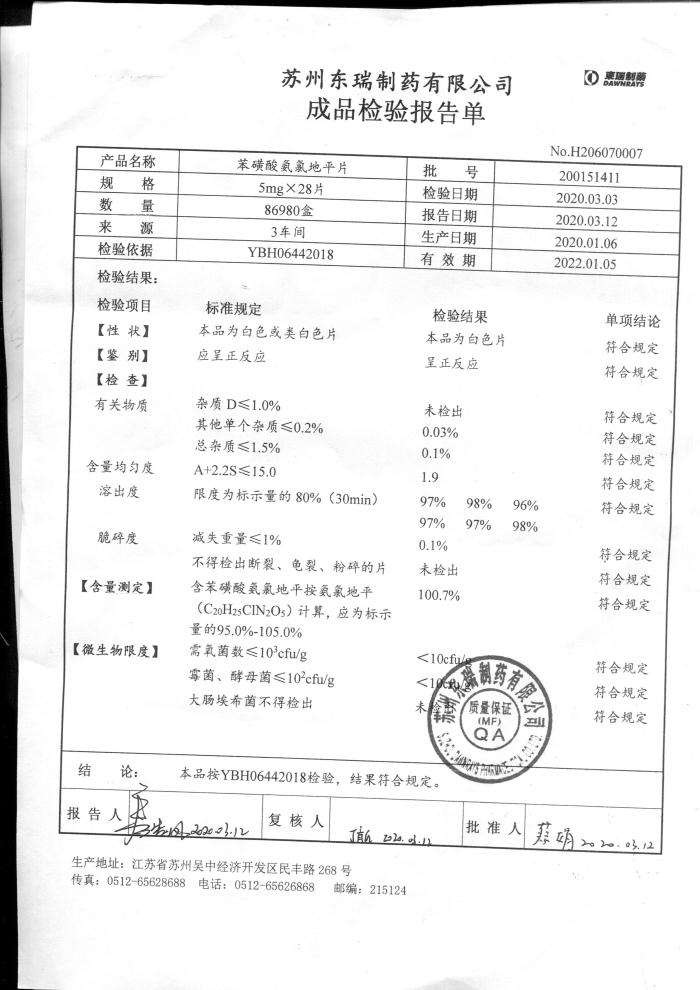 苏州东瑞制药有限公司
東瑞制藥
DAWNRAYS
成品检验报告单
No.H206070007
产品名称 苯磺酸氨氯地平片 批 号 200151411
规 格 5mg×28片 检验日期 2020.03.03
数 量 86980盒 报告日期 2020.03.12
来 源 3车间 生产日期 2020.01.06
检验依据 YBH06442018 有 效 期 2022.01.05
检验结果：
检验项目 标准规定 检验结果 单项结论
【性 状】 本品为白色或类白色片 本品为白色片 符合规定
【鉴 别】 应呈正反应 呈正反应 符合规定
【检 查】
有关物质 杂质 D≤1.0% 未检出 符合规定
其他单个杂质≤0.2% 0.03% 符合规定
总杂质≤1.5% 0.1% 符合规定
含量均匀度 A+2.2S≤15.0 1.9 符合规定
溶出度 限度为标示量的 80%（30min） 97% 98% 96% 符合规定
97% 97% 98%
脆碎度 减失重量≤1% 0.1% 符合规定
不得检出断裂、龟裂、粉碎的片 未检出 符合规定
【含量测定】 含苯磺酸氨氯地平按氨氯地平 100.7% 符合规定
（C₂₀H₂₅ClN₂O₅）计算，应为标示
量的95.0%-105.0%
【微生物限度】 需氧菌数≤10³cfu/g <10cfu/g 符合规定
霉菌、酵母菌≤10²cfu/g <10cfu/g 符合规定
大肠埃希菌不得检出 未检出 符合规定
苏州东瑞制药有限公司
质量保证
(MF)
QA
结 论： 本品按YBH06442018检验，结果符合规定。
报 告 人 2020.03.12 复 核 人 2020.03.12 批 准 人 蔡娟 2020.03.12
生产地址：江苏省苏州吴中经济开发区民丰路 268 号
传真：0512-65628688 电话：0512-65626868 邮编：215124